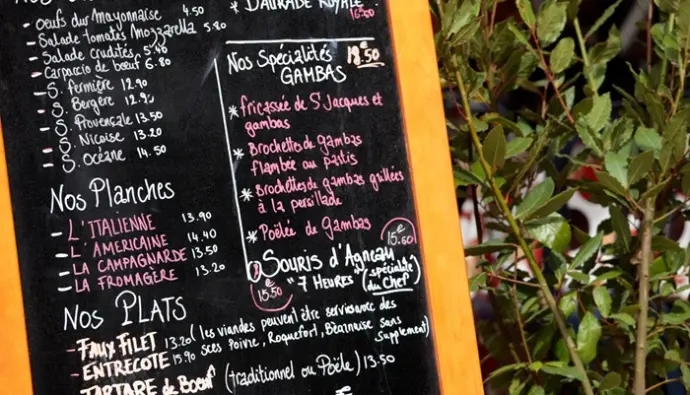 - oeufs dur Mayonnaise 4.50
- Salade tomates Mozzarella 5.80
- Salade crudités, 5.40
- Carpaccio de boeuf 6.80
- S. fermière 12.90
- S. Bergère 12.90
- S. Provençale 13.50
- S. Nicoise 13.20
- S. Océane 14.50
Nos Planches
- L'ITALIENNE 13.90
- L'AMERICAINE 14.40
- LA CAMPAGNARDE 13.50
- LA FROMAGÈRE 13.20
* DAURADE ROYALE
16.50
Nos Spécialités
GAMBAS 18.50
* fricassée de St Jacques et
gambas
* Brochettes de gambas
flambée au pastis
* Brochettes de gambas grillées
à la persillade
* Poêlée de Gambas
15.60
Souris d'Agneau
"7 HEURES" (spécialité
du Chef)
15.50
Nos PLATS
- FAUX FILET 13.20 (les viandes peuvent être servis avec des
- ENTRECOTE 15.90 sces Poivre, Roquefort, Béarnaise sans
supplement)
- TARTARE de Boeuf (traditionnel ou Poêlé) 13.50